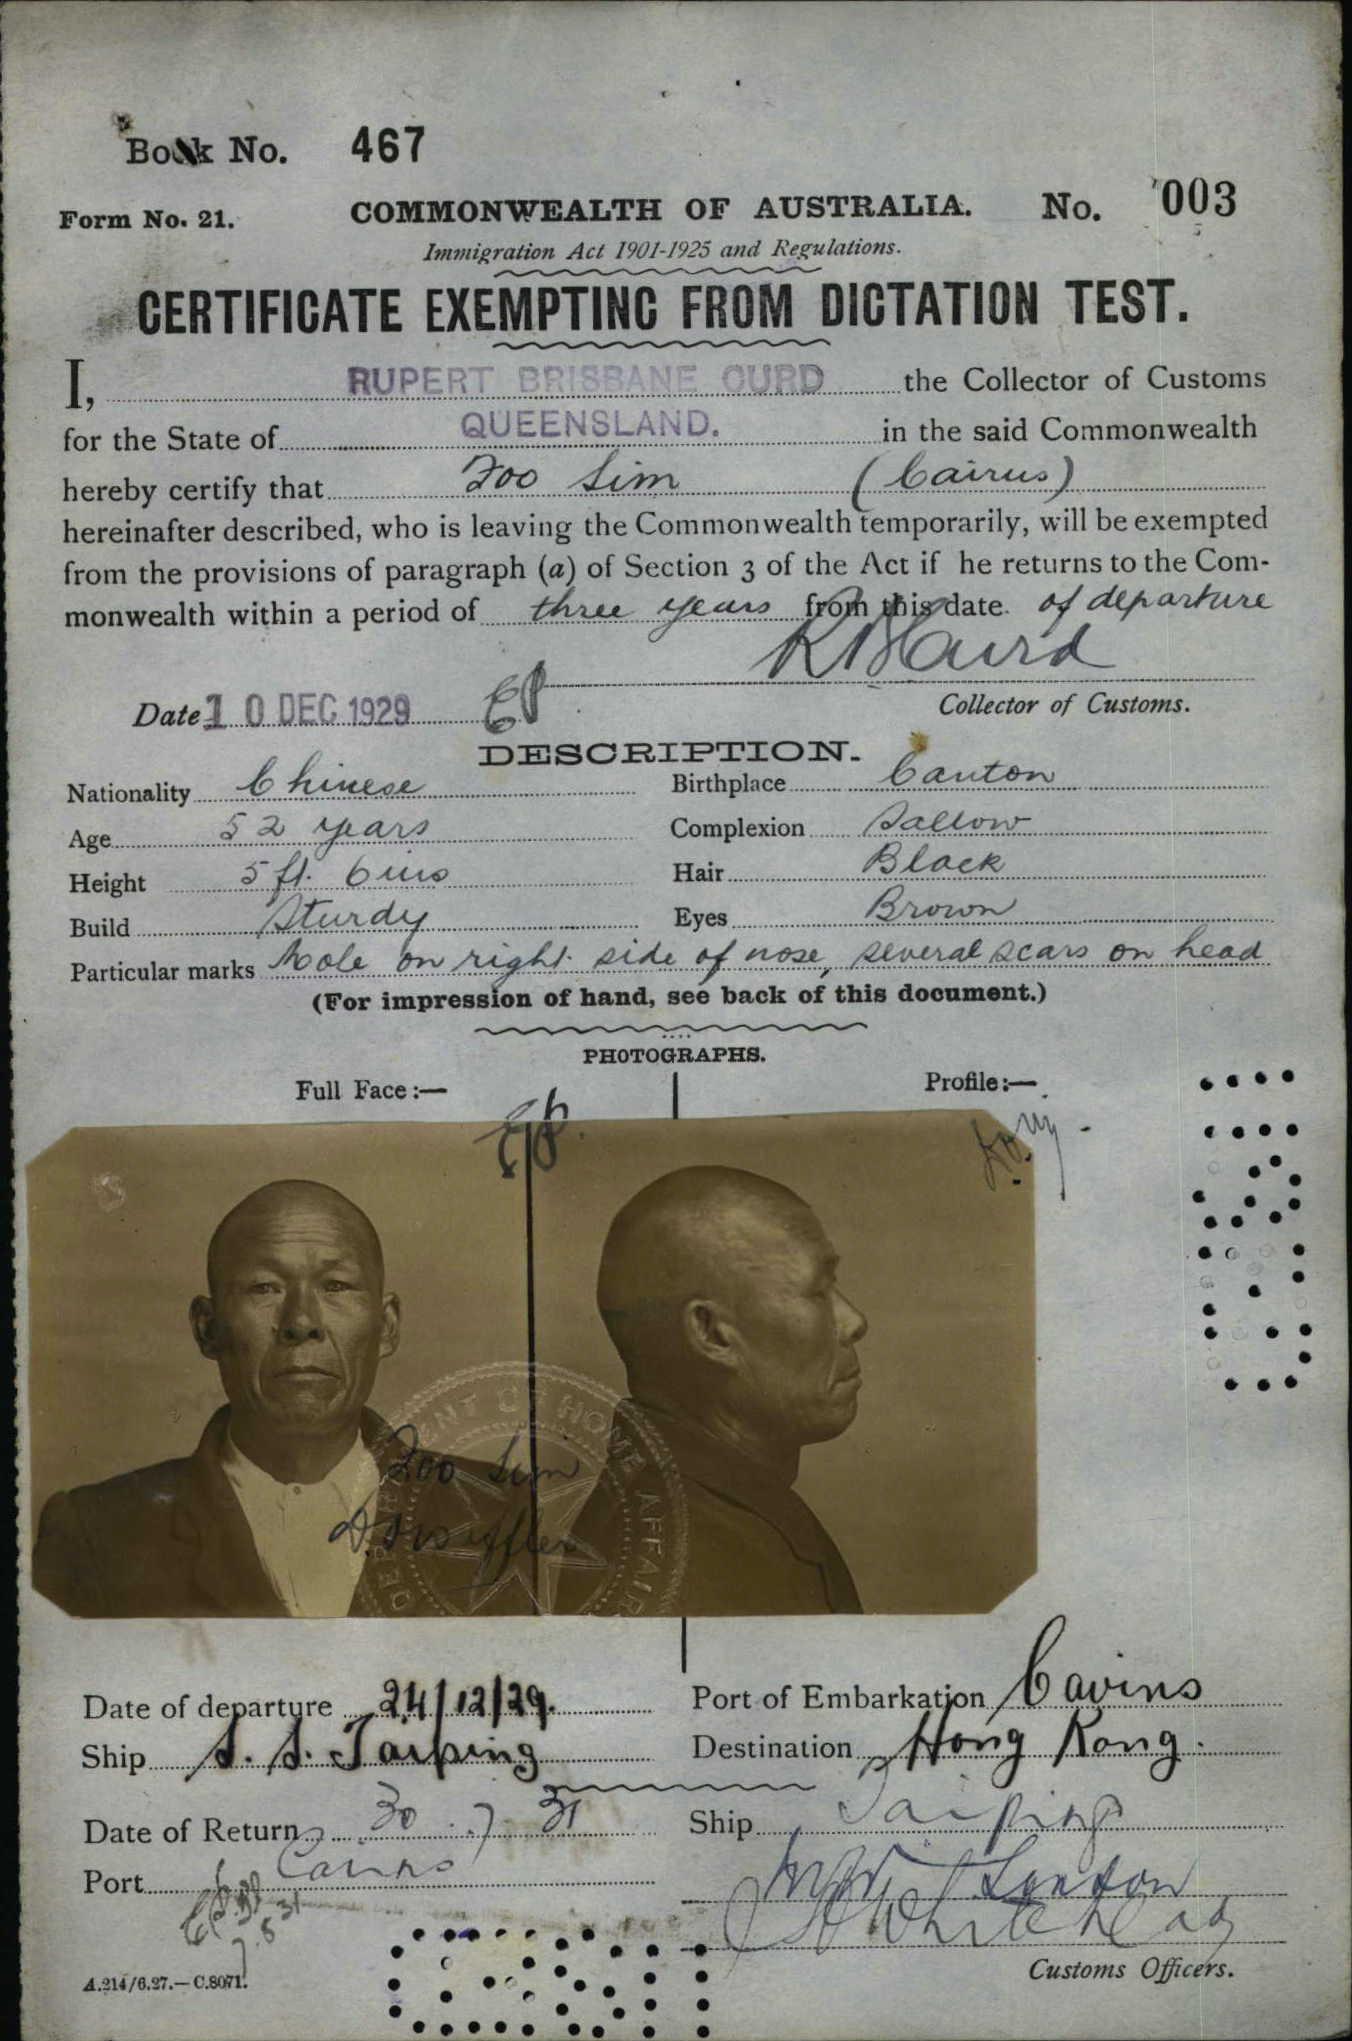 Book No. 467
Form No. 21. COMMONWEALTH OF AUSTRALIA. No. 003
Immigration Act 1901-1925 and Regulations.
CERTIFICATE EXEMPTING FROM DICTATION TEST.
I, RUPERT BRISBANE CURD the Collector of Customs
for the State of QUEENSLAND. in the said Commonwealth
hereby certify that Foo Sim (Cairns)
hereinafter described, who is leaving the Commonwealth temporarily, will be exempted
from the provisions of paragraph (a) of Section 3 of the Act if he returns to the Com-
monwealth within a period of three years from this date of departure
R B Curd
Date 10 DEC 1929
Collector of Customs.
DESCRIPTION.
Nationality Chinese Birthplace Canton
Age 52 years Complexion Sallow
Height 5 ft. 6 ins Hair Black
Build Sturdy Eyes Brown
Particular marks Mole on right side of nose, several scars on head
(For impression of hand, see back of this document.)
PHOTOGRAPHS.
Full Face:— Profile:—
DEPARTMENT OF HOME AFFAIRS
Foo Sim
Date of departure 24/12/29. Port of Embarkation Cairns
Ship S. S. Taiping Destination Hong Kong.
Date of Return 30.7.31 Ship Taiping
Port Cairns
7.8.31
Customs Officers.
A.214/6.27.—C.8071.